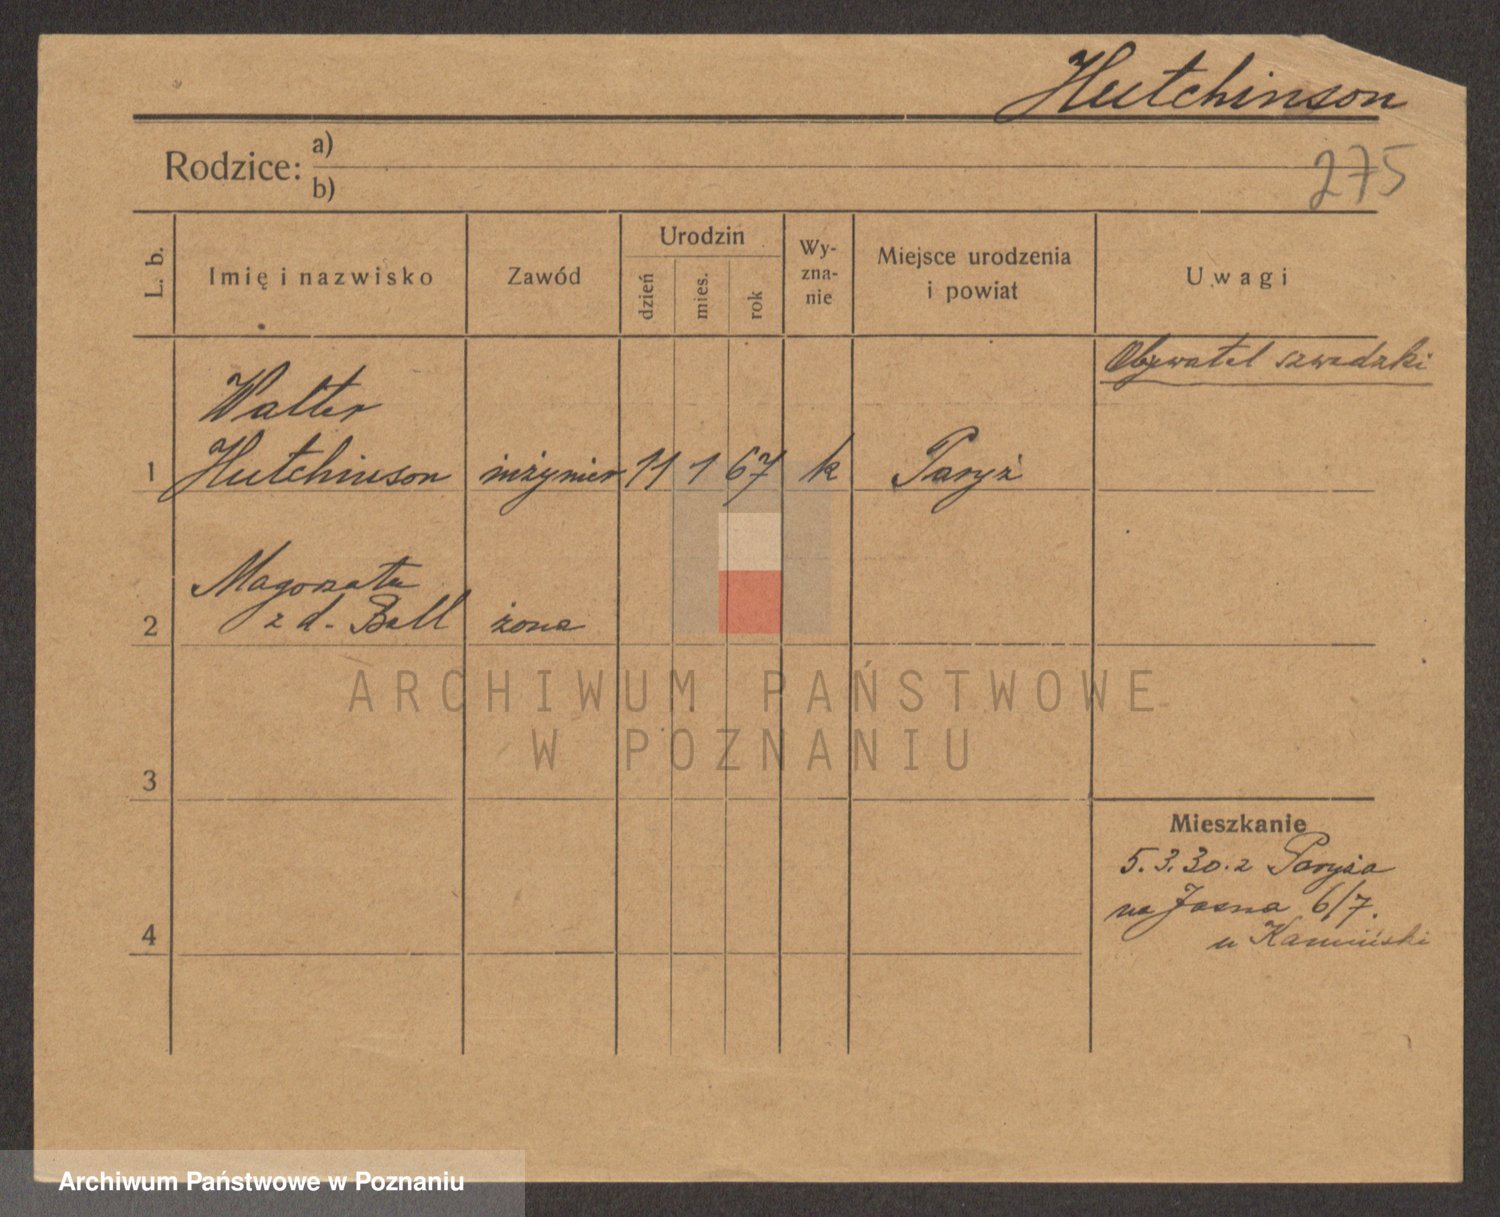 Hutchinson
275
Rodzice: a)
b)
L. b.
Imię i nazwisko
Zawód
Urodzin
dzień
mies.
rok
Wy-
zna-
nie
Miejsce urodzenia
i powiat
Uwagi
Obywatel szwedzki
Walter
1 Hutchinson inżynier 11 1 67 k Paryż
Magorzata
2 z d. Ball żona
3
4
Mieszkanie
5.3.30. z Paryża
na Jasna 6/7.
u Kamiński
ARCHIWUM PAŃSTWOWE
W POZNANIU
Archiwum Państwowe w Poznaniu